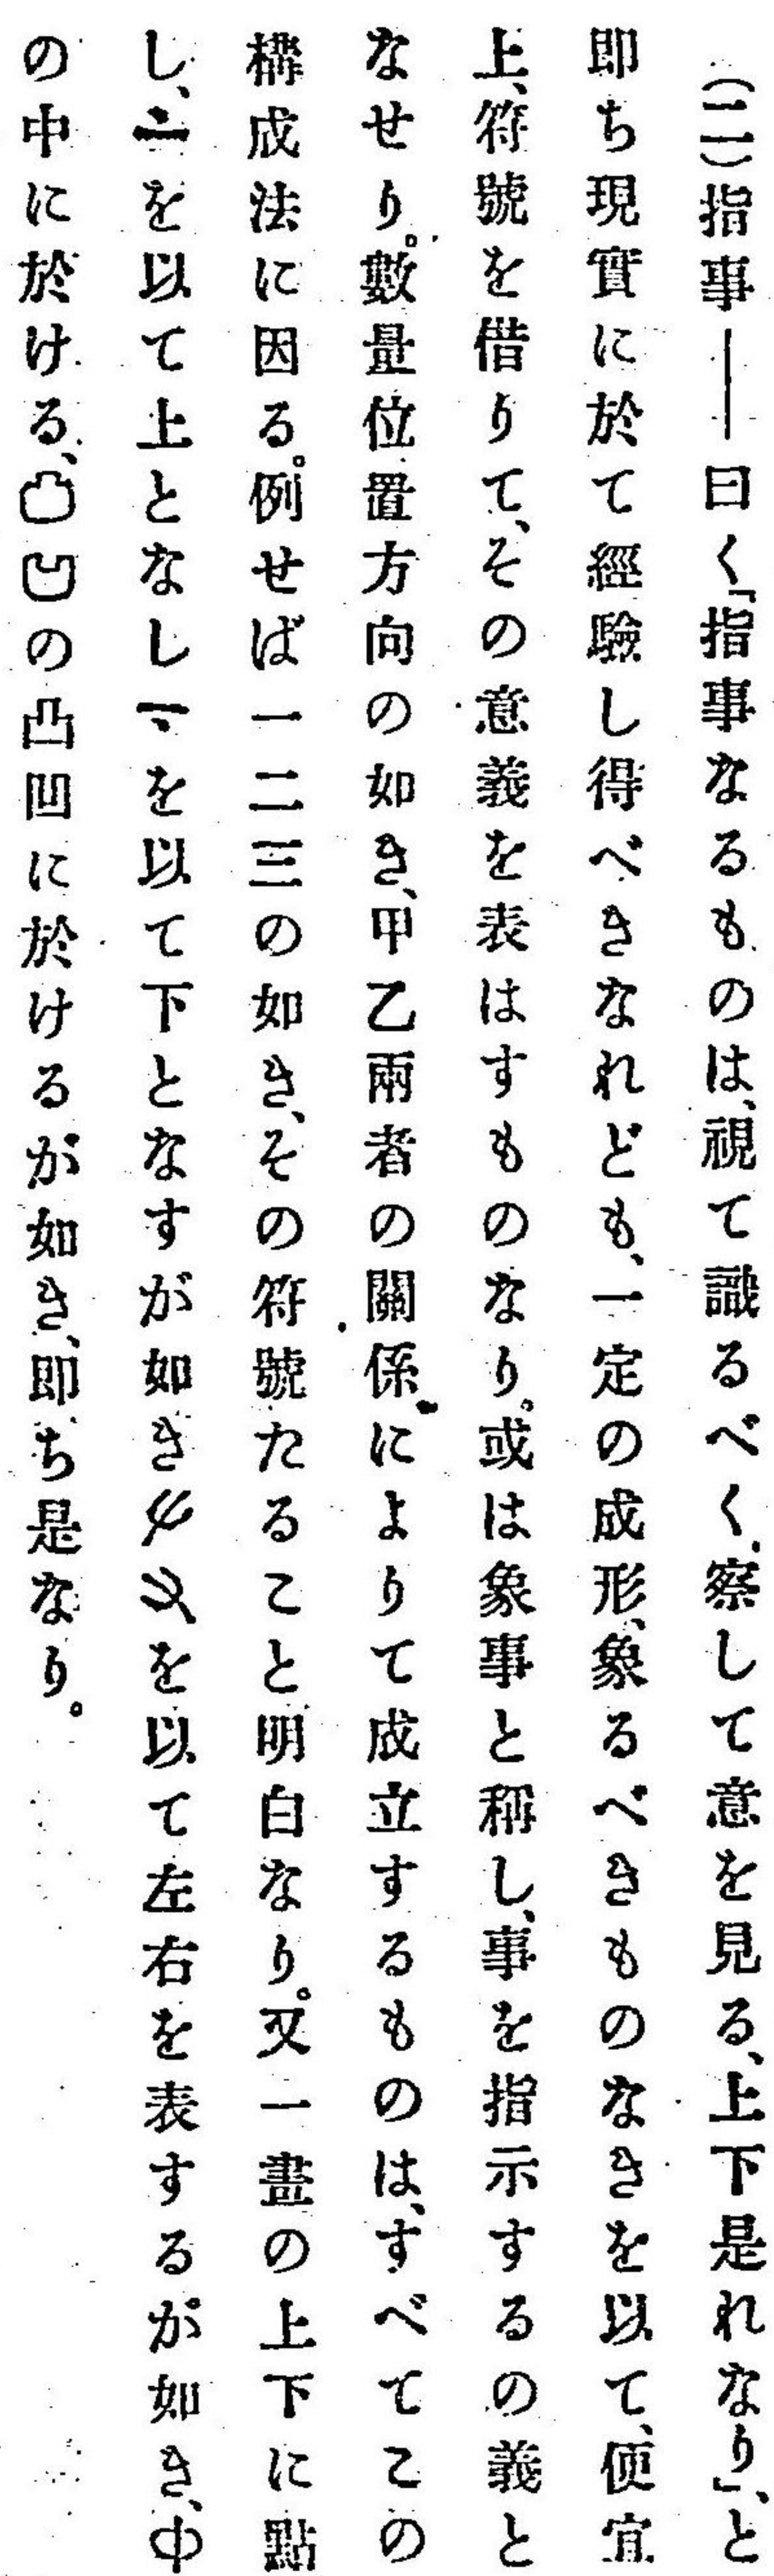 (二)指事――曰く「指事なるものは、視て識るべく、察して意を見る、上下是れなり」、と
即ち現實に於て經驗し得べきなれども、一定の成形、象るべきものなきを以て、便宜
上、符號を借りて、その意義を表はすものなり。或は象事と稱し、事を指示するの義と
なせり。數量位置方向の如き、甲乙兩者の關係によりて成立するものは、すべてこの
構成法に因る。例せば一二三の如き、その符號たること明白なり。又一畫の上下に點
し、を以て上となしを以て下となすが如きを以て左右を表するが如き、中
の中に於ける、の凸凹に於けるが如き、即ち是なり。